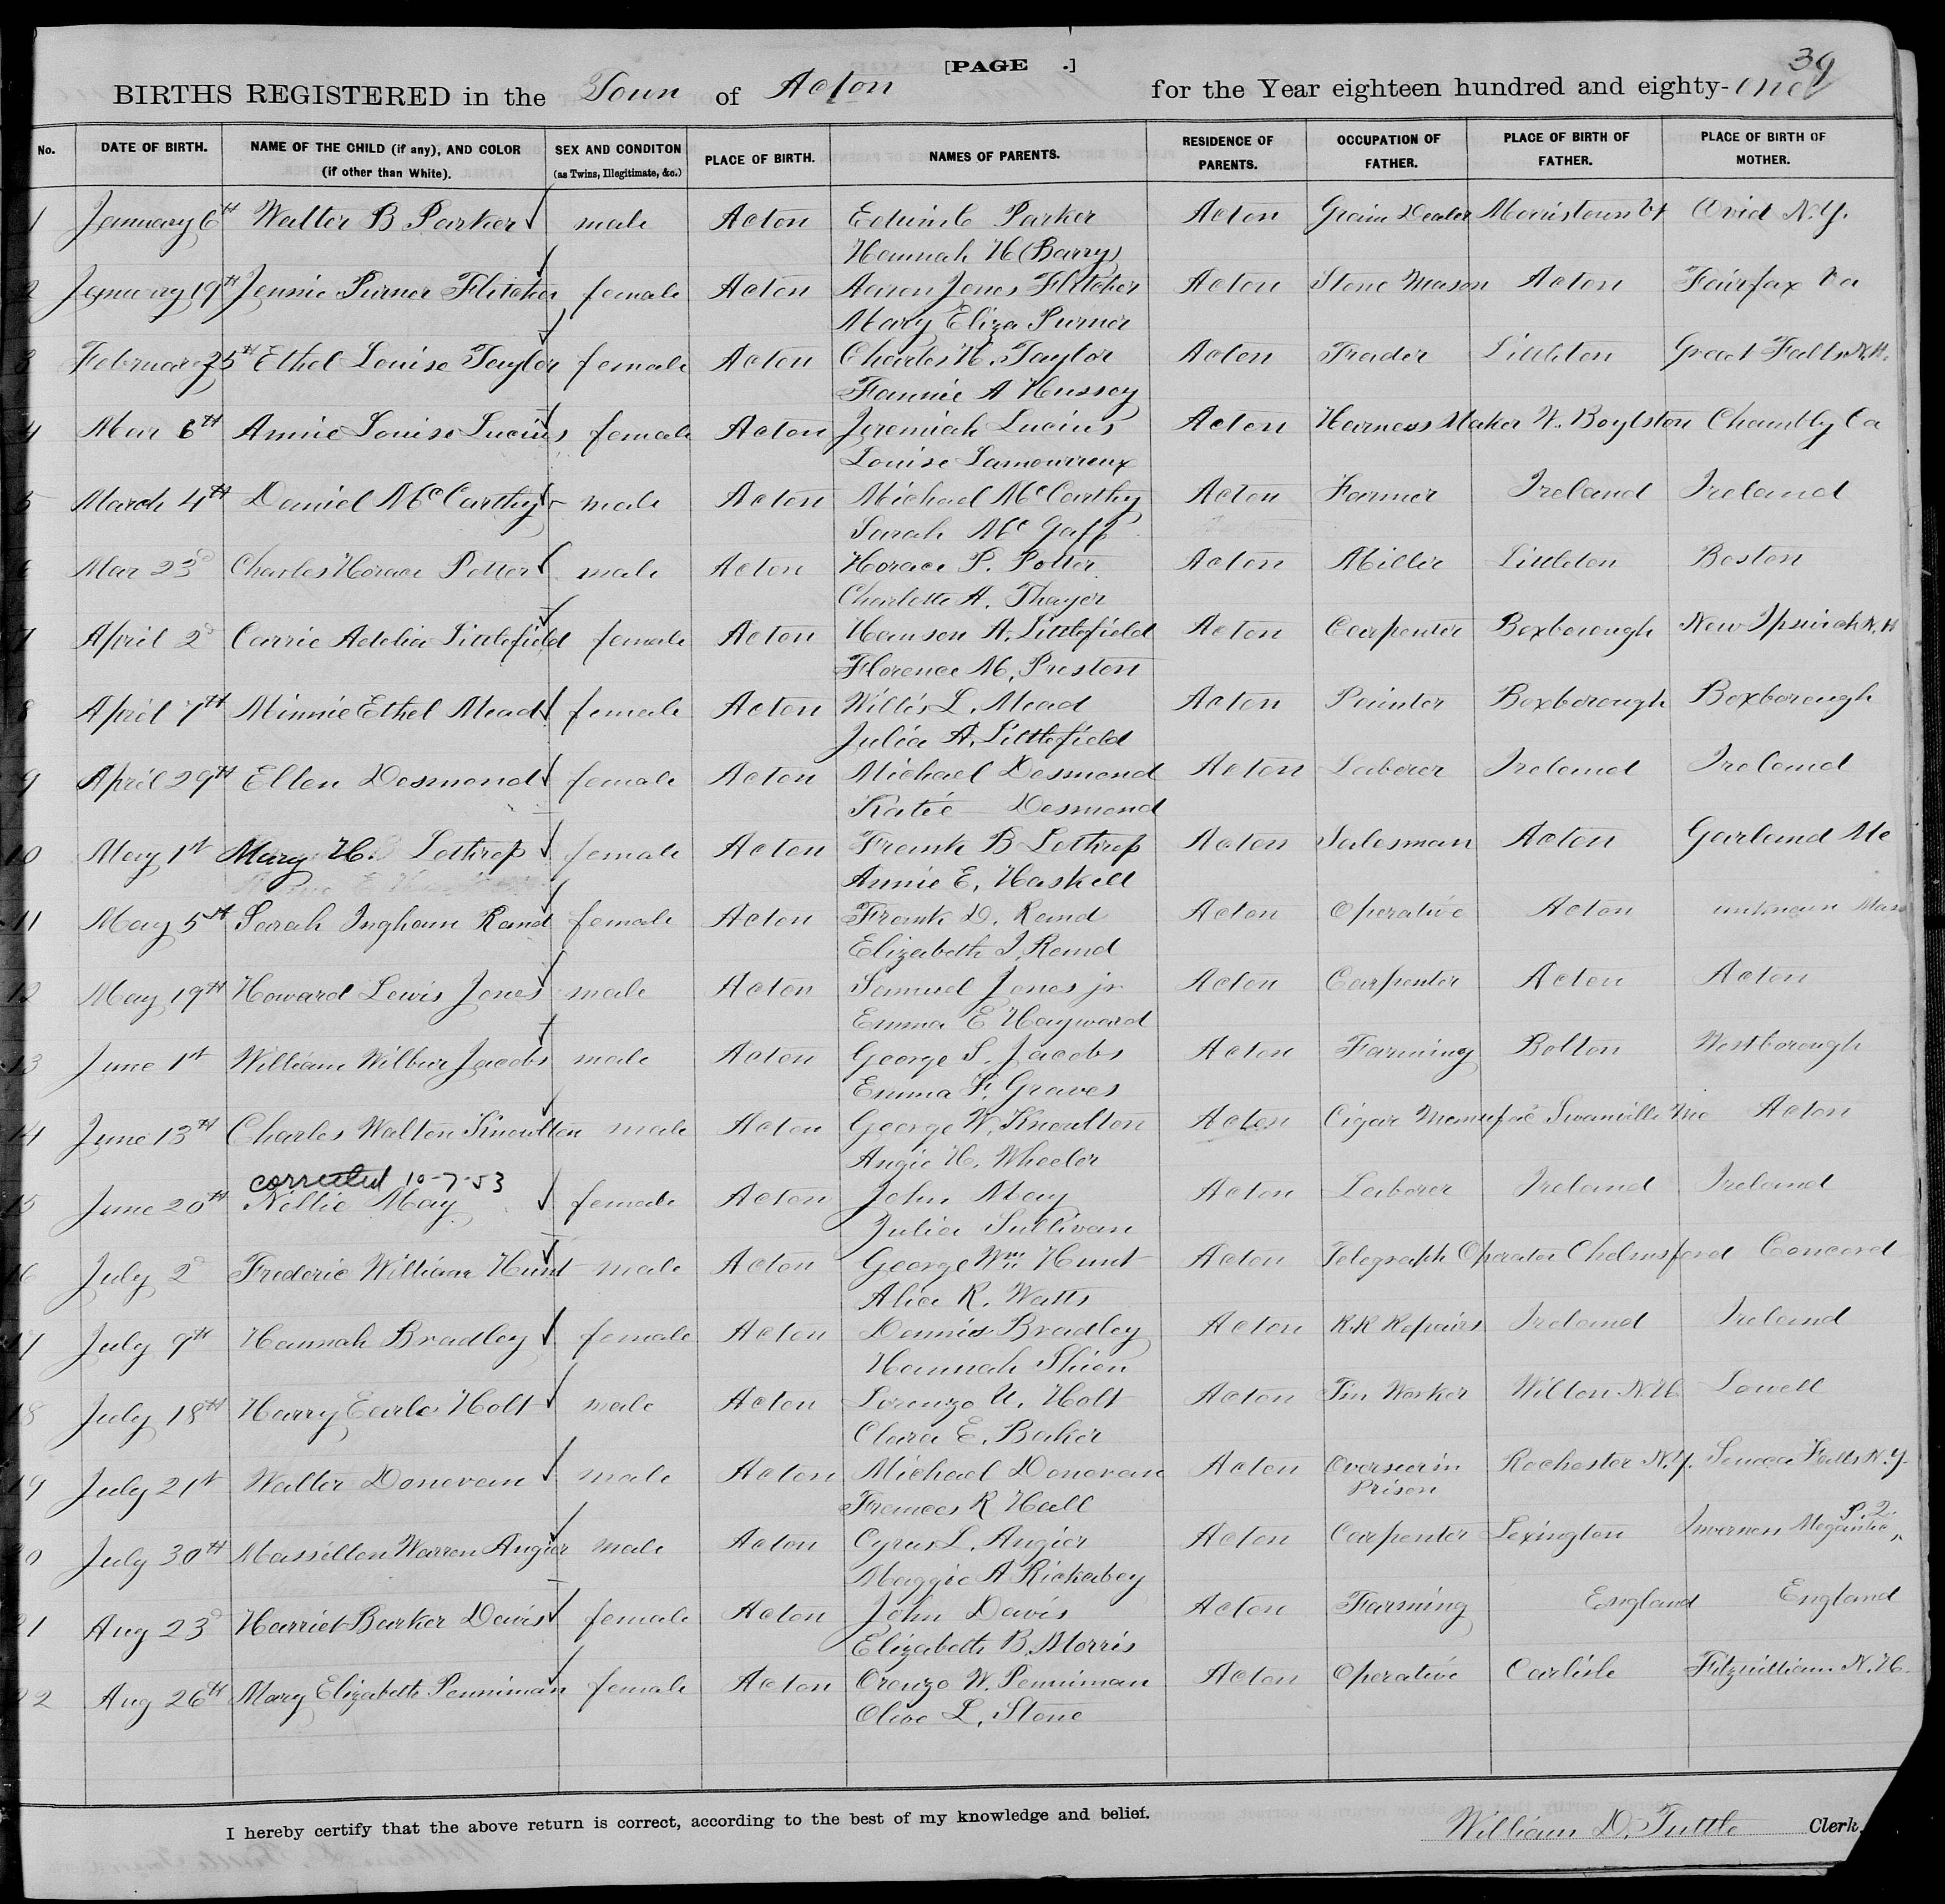 [PAGE .] 39
BIRTHS REGISTERED in the Town of Acton for the Year eighteen hundred and eighty-one
No. DATE OF BIRTH. NAME OF THE CHILD (if any), AND COLOR (if other than White). SEX AND CONDITON (as Twins, Illegitimate, &c.) PLACE OF BIRTH. NAMES OF PARENTS. RESIDENCE OF PARENTS. OCCUPATION OF FATHER. PLACE OF BIRTH OF FATHER. PLACE OF BIRTH OF MOTHER.
1 January 6th Walter B Parker male Acton Edwin C Parker Acton Grain Dealer Morristown Vt Ovid N.Y.
Hannah H (Barry)
2 January 19th Jennie Purner Fletcher female Acton Aaron Jones Fletcher Acton Stone Mason Acton Fairfax Va
Mary Eliza Purner
3 February 25th Ethel Louise Taylor female Acton Charles H. Taylor Acton Trader Littleton Great Falls N.H.
Fannie A Hussey
4 Mar 6th Annie Louise Lucius female Acton Jeremiah Lucius Acton Harness Maker W. Boylston Chambly Ca
Louise Lamoureux
5 March 4th Daniel McCarthy male Acton Michael McCarthy Acton Farmer Ireland Ireland
Sarah Mc Gaff
6 Mar 23d Charles Horace Potter male Acton Horace P. Potter Acton Miller Littleton Boston
Charlotte A. Thayer
7 April 2d Carrie Adelia Littlefield female Acton Hanson A. Littlefield Acton Carpenter Boxborough New Ipswich N.H
Florence M. Preston
8 April 7th Minnie Ethel Mead female Acton Willis L. Mead Acton Painter Boxborough Boxborough
Julia A. Littlefield
9 April 29th Ellen Desmond female Acton Michael Desmond Acton Laborer Ireland Ireland
Katie Desmond
10 May 1st Mary H. Lothrop female Acton Frank B Lothrop Acton Salesman Acton Garland Me
Annie E. Haskell
11 May 5st Sarah Ingham Rand female Acton Frank D. Rand Acton Operative Acton unknown Mass
Elizabeth I. Rand
12 May 19th Howard Lewis Jones male Acton Samuel Jones jr. Acton Carpenter Acton Acton
Emma E Hayward
13 June 1st William Wilbur Jacobs male Acton George S. Jacobs Acton Farming Bolton Westborough
Emma F. Graves
14 June 13th Charles Walton Knowlton male Acton George W. Knowlton Acton Cigar Manufac Swanville Me Acton
Angie H. Wheeler
corrected 10-7-53
15 June 20th Nellie May female Acton John May Acton Laborer Ireland Ireland
Julia Sullivan
16 July 2d Frederic William Hunt male Acton George Wm Hunt Acton Telegraph Operator Chelmsford Concord
Alice R. Watts
17 July 9th Hannah Bradley female Acton Dennis Bradley Acton R.R Repairs Ireland Ireland
Hannah Shion
18 July 18th Harry Earle Holt male Acton Lorenzo U. Holt Acton Tin Worker Wilton N.H. Lowell
Clara E. Baker
19 July 21st Walter Donovan male Acton Michael Donovan Acton Overseer in Prison Rochester N.Y. Seneca Falls N.Y.
Frances R Hall
20 July 30th Massillon Warren Angier male Acton Cyrus L. Angier Acton Carpenter Lexington Inverness Megantic P.2.
Maggie A Rickabey
21 Aug 23d Harriet Barker Davis female Acton John Davis Acton Farming England England
Elizabeth B. Morris
22 Aug 26th Mary Elizabeth Penniman female Acton Orenzo W. Penniman Acton Operative Carlisle Fitzwilliam N.H.
Olive L. Stone
I hereby certify that the above return is correct, according to the best of my knowledge and belief.
William D. Tuttle Clerk.